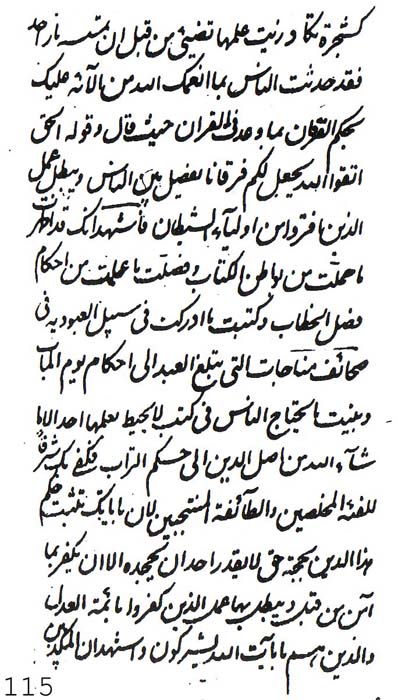 كشجرة تكاد زيت علمها تضيئ من قبل ان تمسه نار احد
فقد حدثت الناس بما انعمك الله من آلائه عليك
بحكم القران بما وعد فى القران حيث قال وقوله الحق
اتقوا الله يجعل لكم فرقانا يفصل بين الناس ويبطل عمل
الذين افتروا من اولياء الشيطان فاشهد انك قد اظهرت
ما حملت من باطن الكتاب وفصلت ما علمت من احكام
فصل الخطاب وكتبت ما ادركت فى سبيل العبودية فى
صحائف مناجات التى يبلغ العبد الى احكام يوم المآب
وبينت ما يحتاج الناس فى كتب لا يحيط بعلمها احد الا ما
شاء الله من اصل الدين الى حكم التراب فكفى بك شرفا
للفئة المخلصين والطائفة المنتجبين لان بآياتك تثبت حكم
هذا الدين بحجة حق لا يقدر احد ان يجحده الا ان يكفر بما
آمن من قبل ويبطل بها عمل الذين كفروا بائمة العدل
والذين هم بآيات الله يشركون واشهد ان المكذبين
115